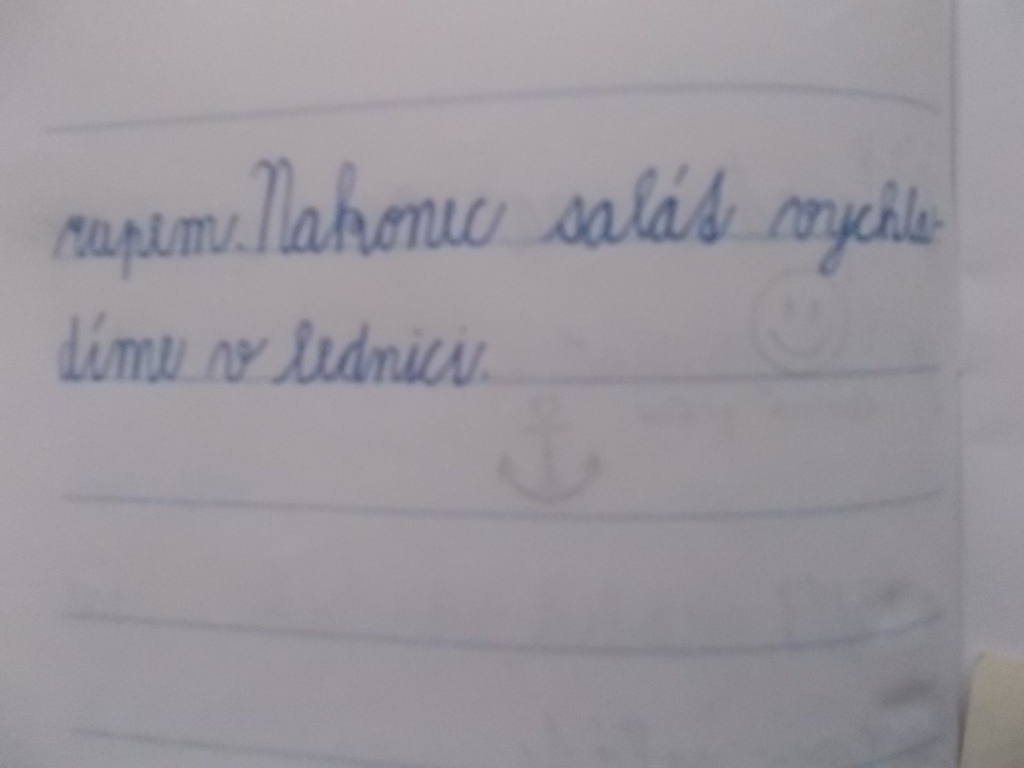 rupem. Nakonec salát vychla-
díme v lednici.